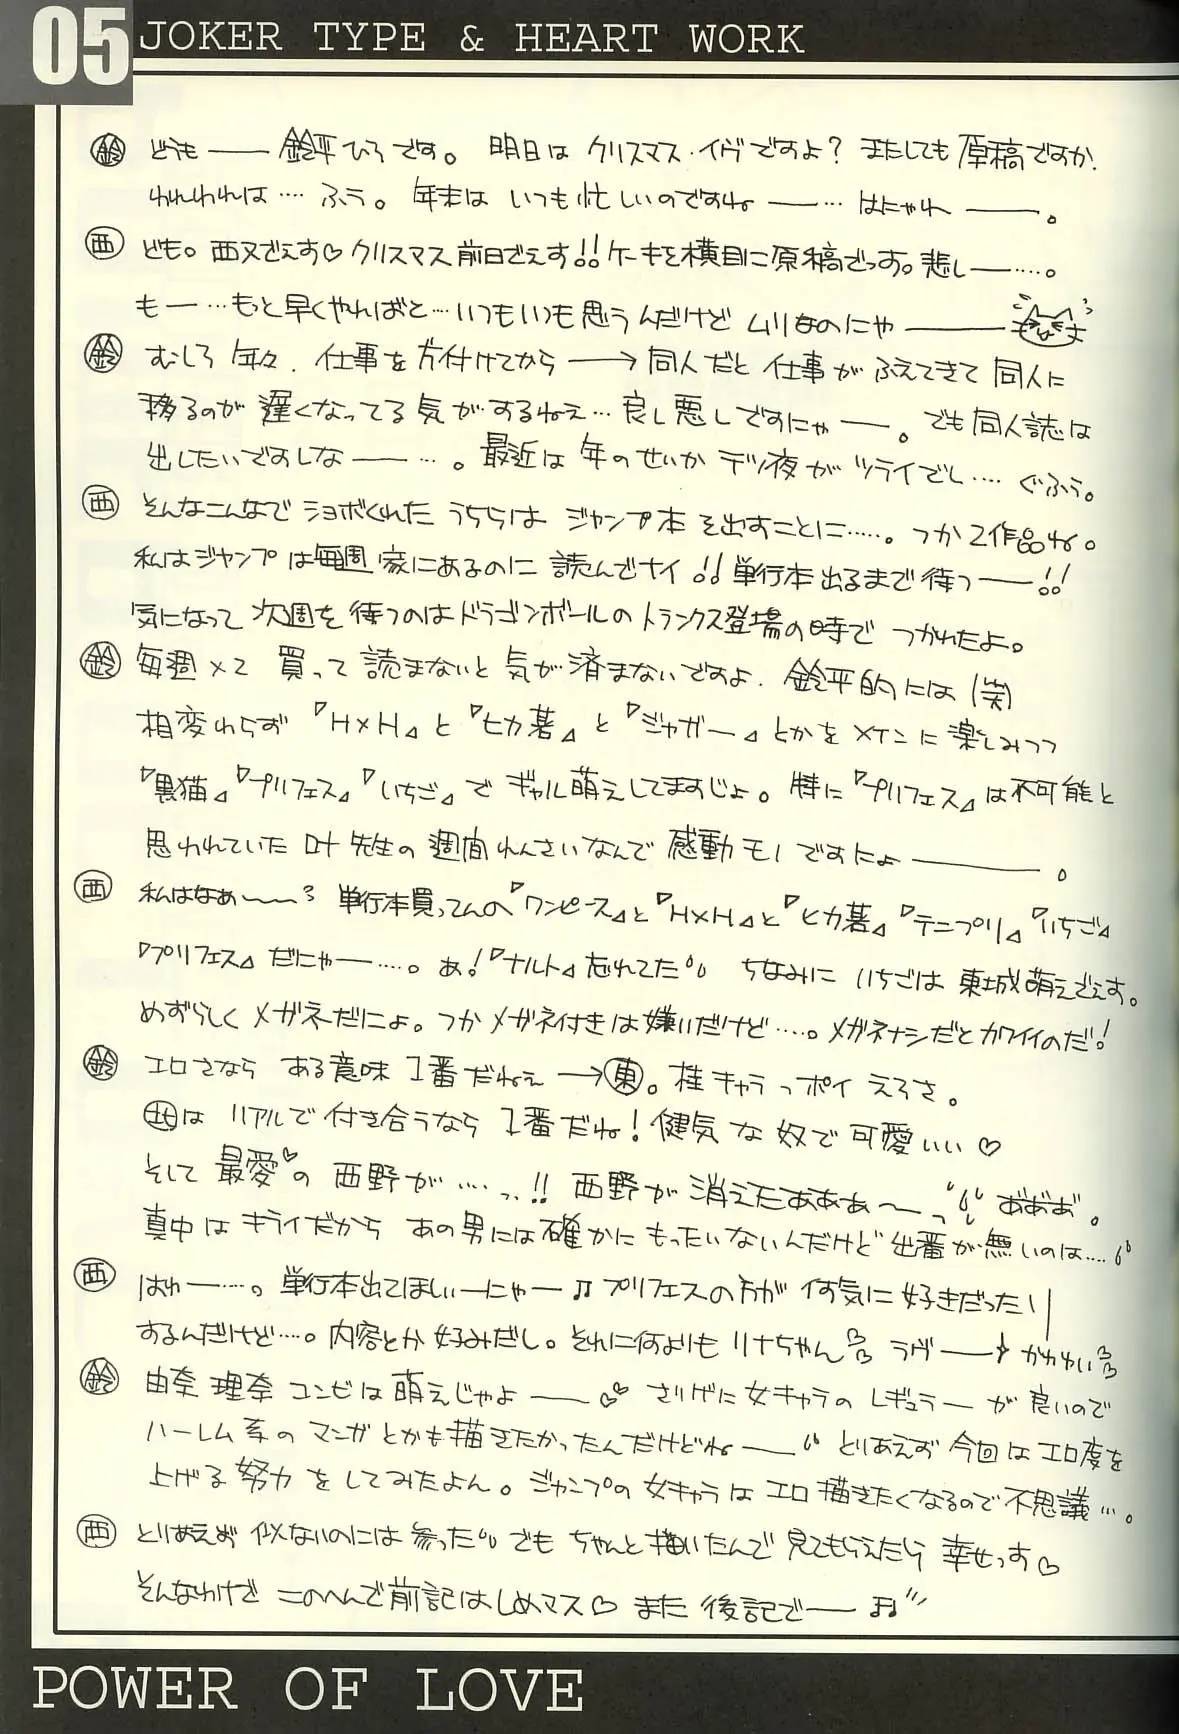 05 JOKER TYPE & HEART WORK
鈴 どうも——鈴平ひろです。 明日は クリスマス・イヴですよ? またしても 原稿ですか.
われわれは…. ふぅ。 年末は いつも 忙しいのですね——… はにゃれ——。
西 ども。西又でぇす♡ クリスマス前日でぇす!! ケーキを横目に原稿でっす。悲し——….。
もー …もっと早くやればと…いつもいつも思うんだけど ムリなのにゃ——
鈴 むしろ 年々. 仕事を 方付けてから ——→ 同人だと 仕事が ふえてきて 同人に
移るのが 遅くなってる 気がするねぇ… 良し悪しですにゃー—。でも同人誌は
出したいですしな——….。最近は 年のせいか デツ夜が ツライでし…. ぐふぅ。
西 そんなこんなで ショボくれた うちらは ジャンプ本 を出すことに…..。つか2作品ね。
私はジャンプは毎週 家にあるのに 読んでナイ!! 単行本出るまで 待つ——!!
気になって 次週を 待つのはドラゴンボールの トランクス登場の時で つかれたよ。
鈴 毎週×2 買って 読まないと 気が済まないですよ. 鈴平的には (笑)
相変わらず 『H×H』と『ヒカ碁』と『ジャガー』とかを メインに 楽しみつつ
『黒猫』『プリフェス』『いちご』で ギャル萌えしてますじょ。 特に『プリフェス』は不可能と
思われていた 叶 先生の 週間れんさいなんで 感動モノですにょ——。
西 私はなぁ〜〜? 単行本買ってんの『ワンピース』と『H×H』と『ヒカ碁』『テニプリ』『いちご』
『プリフェス』だにゃー—….。あ!『ナルト』忘れてた ちなみに いちごは 東城萌えでぇす。
めずらしく メガネだにょ。つかメガネ付きは嫌いだけど….。メガネナシだとカワイイのだ!
鈴 エロさなら ある意味 1番だねぇ —→東。桂キャラっポイ えろさ。
北は リアルで 付き合うなら 1番だね! 健気な 奴で 可愛いい♡
そして 最愛♡の 西野が….っ!! 西野が 消えたあああ〜っ あ゛あ゛あ゛。
真中は キライだから あの男には 確かに もったいないんだけど 出番が無いのは….
西 はわー—….。単行本出てほしぃーにゃー♫ プリフェスの方が 何気に 好きだったり
するんだけど….。内容とか 好みだし。それに何よりも リナちゃん ラヴ—— かわわい
鈴 由奈 理奈 コンビは 萌えじゃよ——♡ さりげに 女キャラの レギュラーが 良いので
ハーレム系の マンガとかも 描きたかったんだけどね—— とりあえず 今回は エロ度を
上げる 努力 をしてみたよん。ジャンプの 女キャラは エロ描きたくなるので 不思議…。
西 とりあえず 似ないのには 参った でも ちゃんと描いたんで 見てもらえたら 幸せっす♡
そんなわけで このへんで前記はしめマス♡ また 後記で—— ♫
POWER OF LOVE